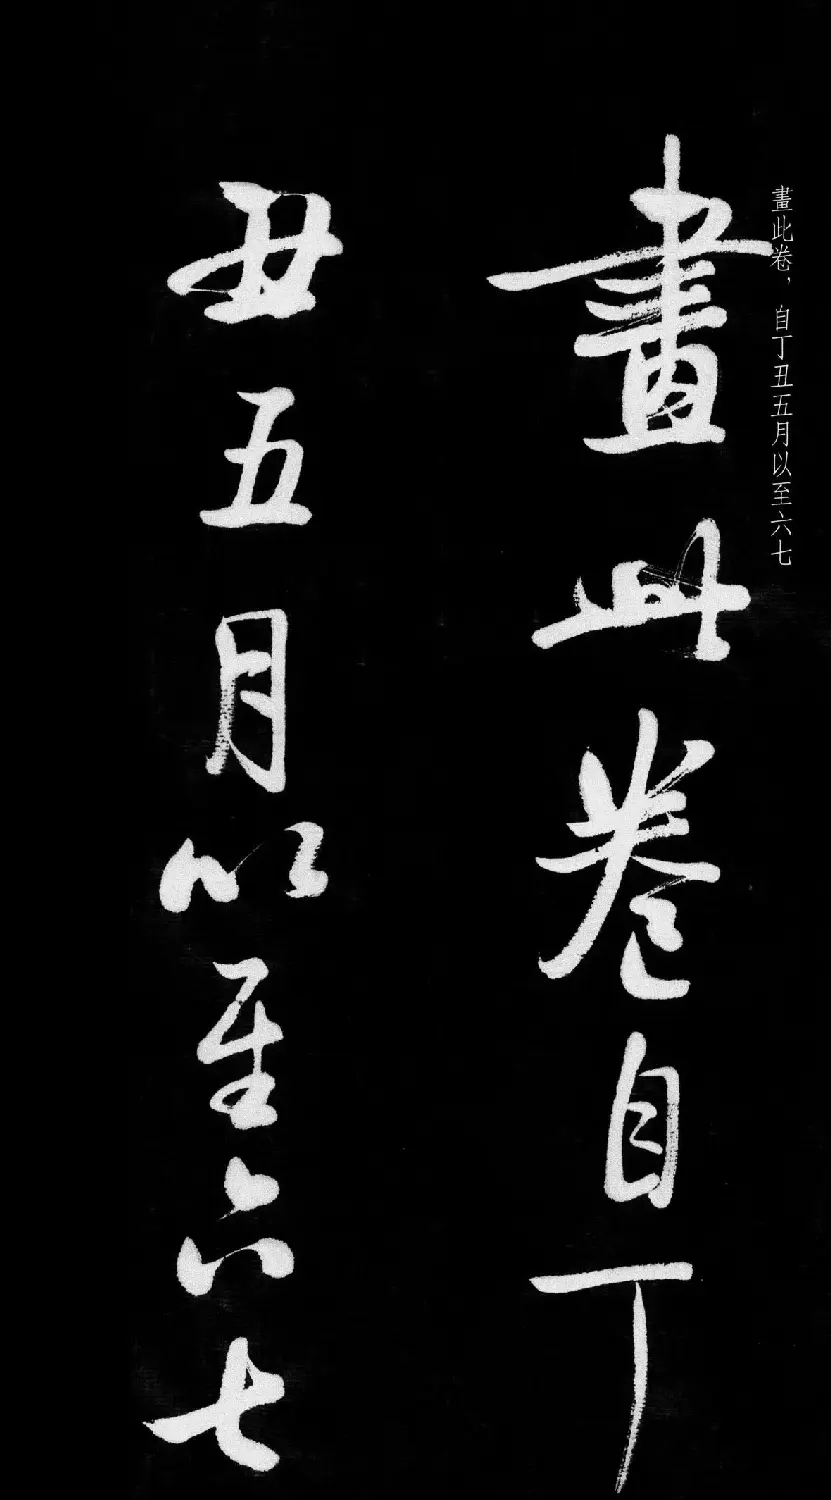 畫此卷，自丁丑五月以至六七
畫此卷自丁
丑五月以至六七